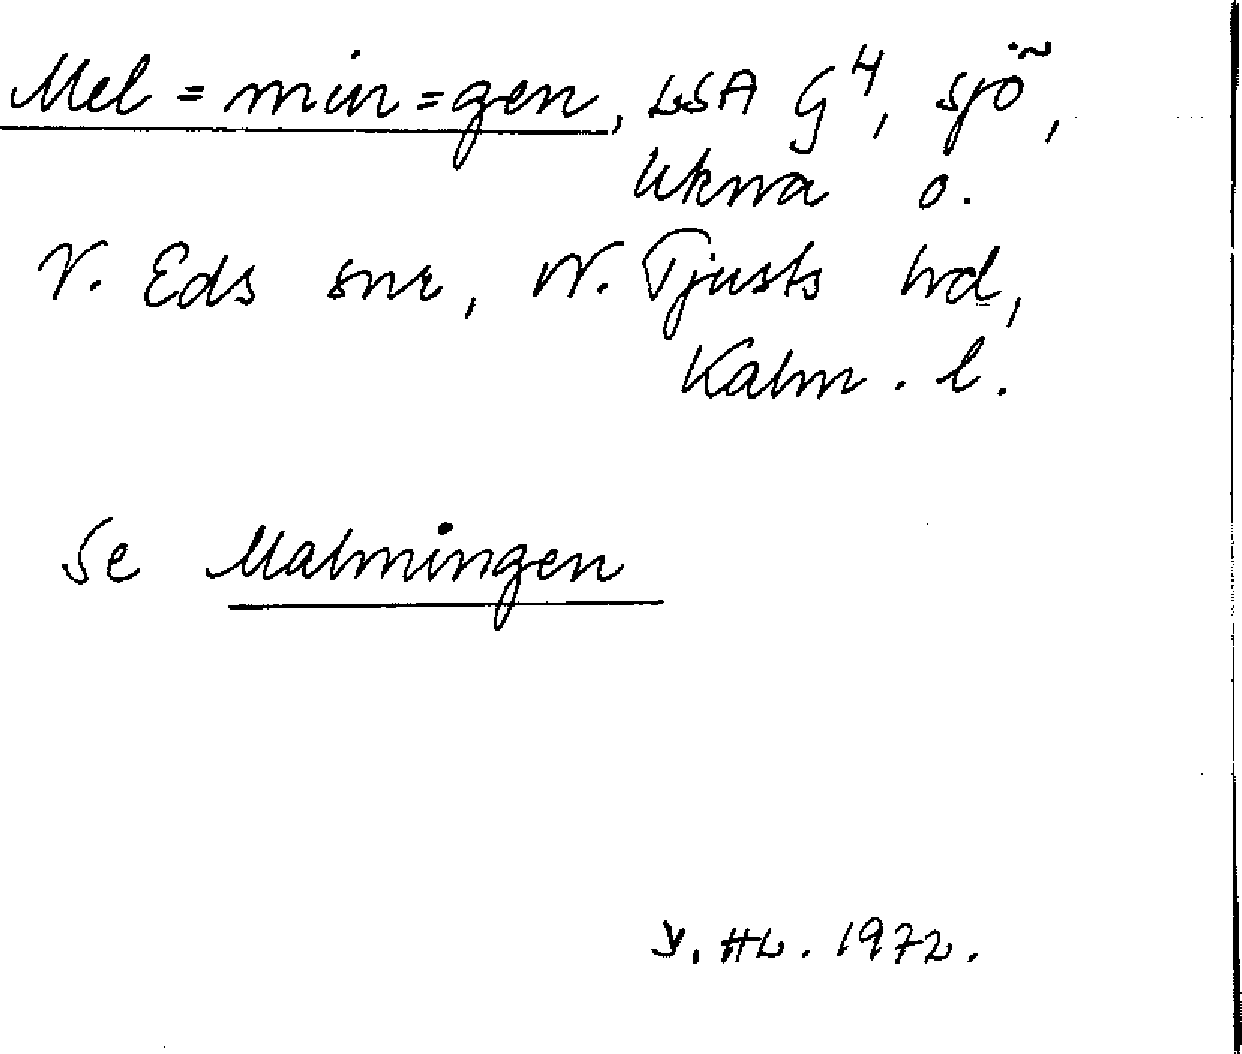 Mel=min=gen, LSA G4, sjö,
Ukna o.
V. Eds snr, N. Tjusts hd,
Kalm. l.
Se Malmingen
HL. 1972.